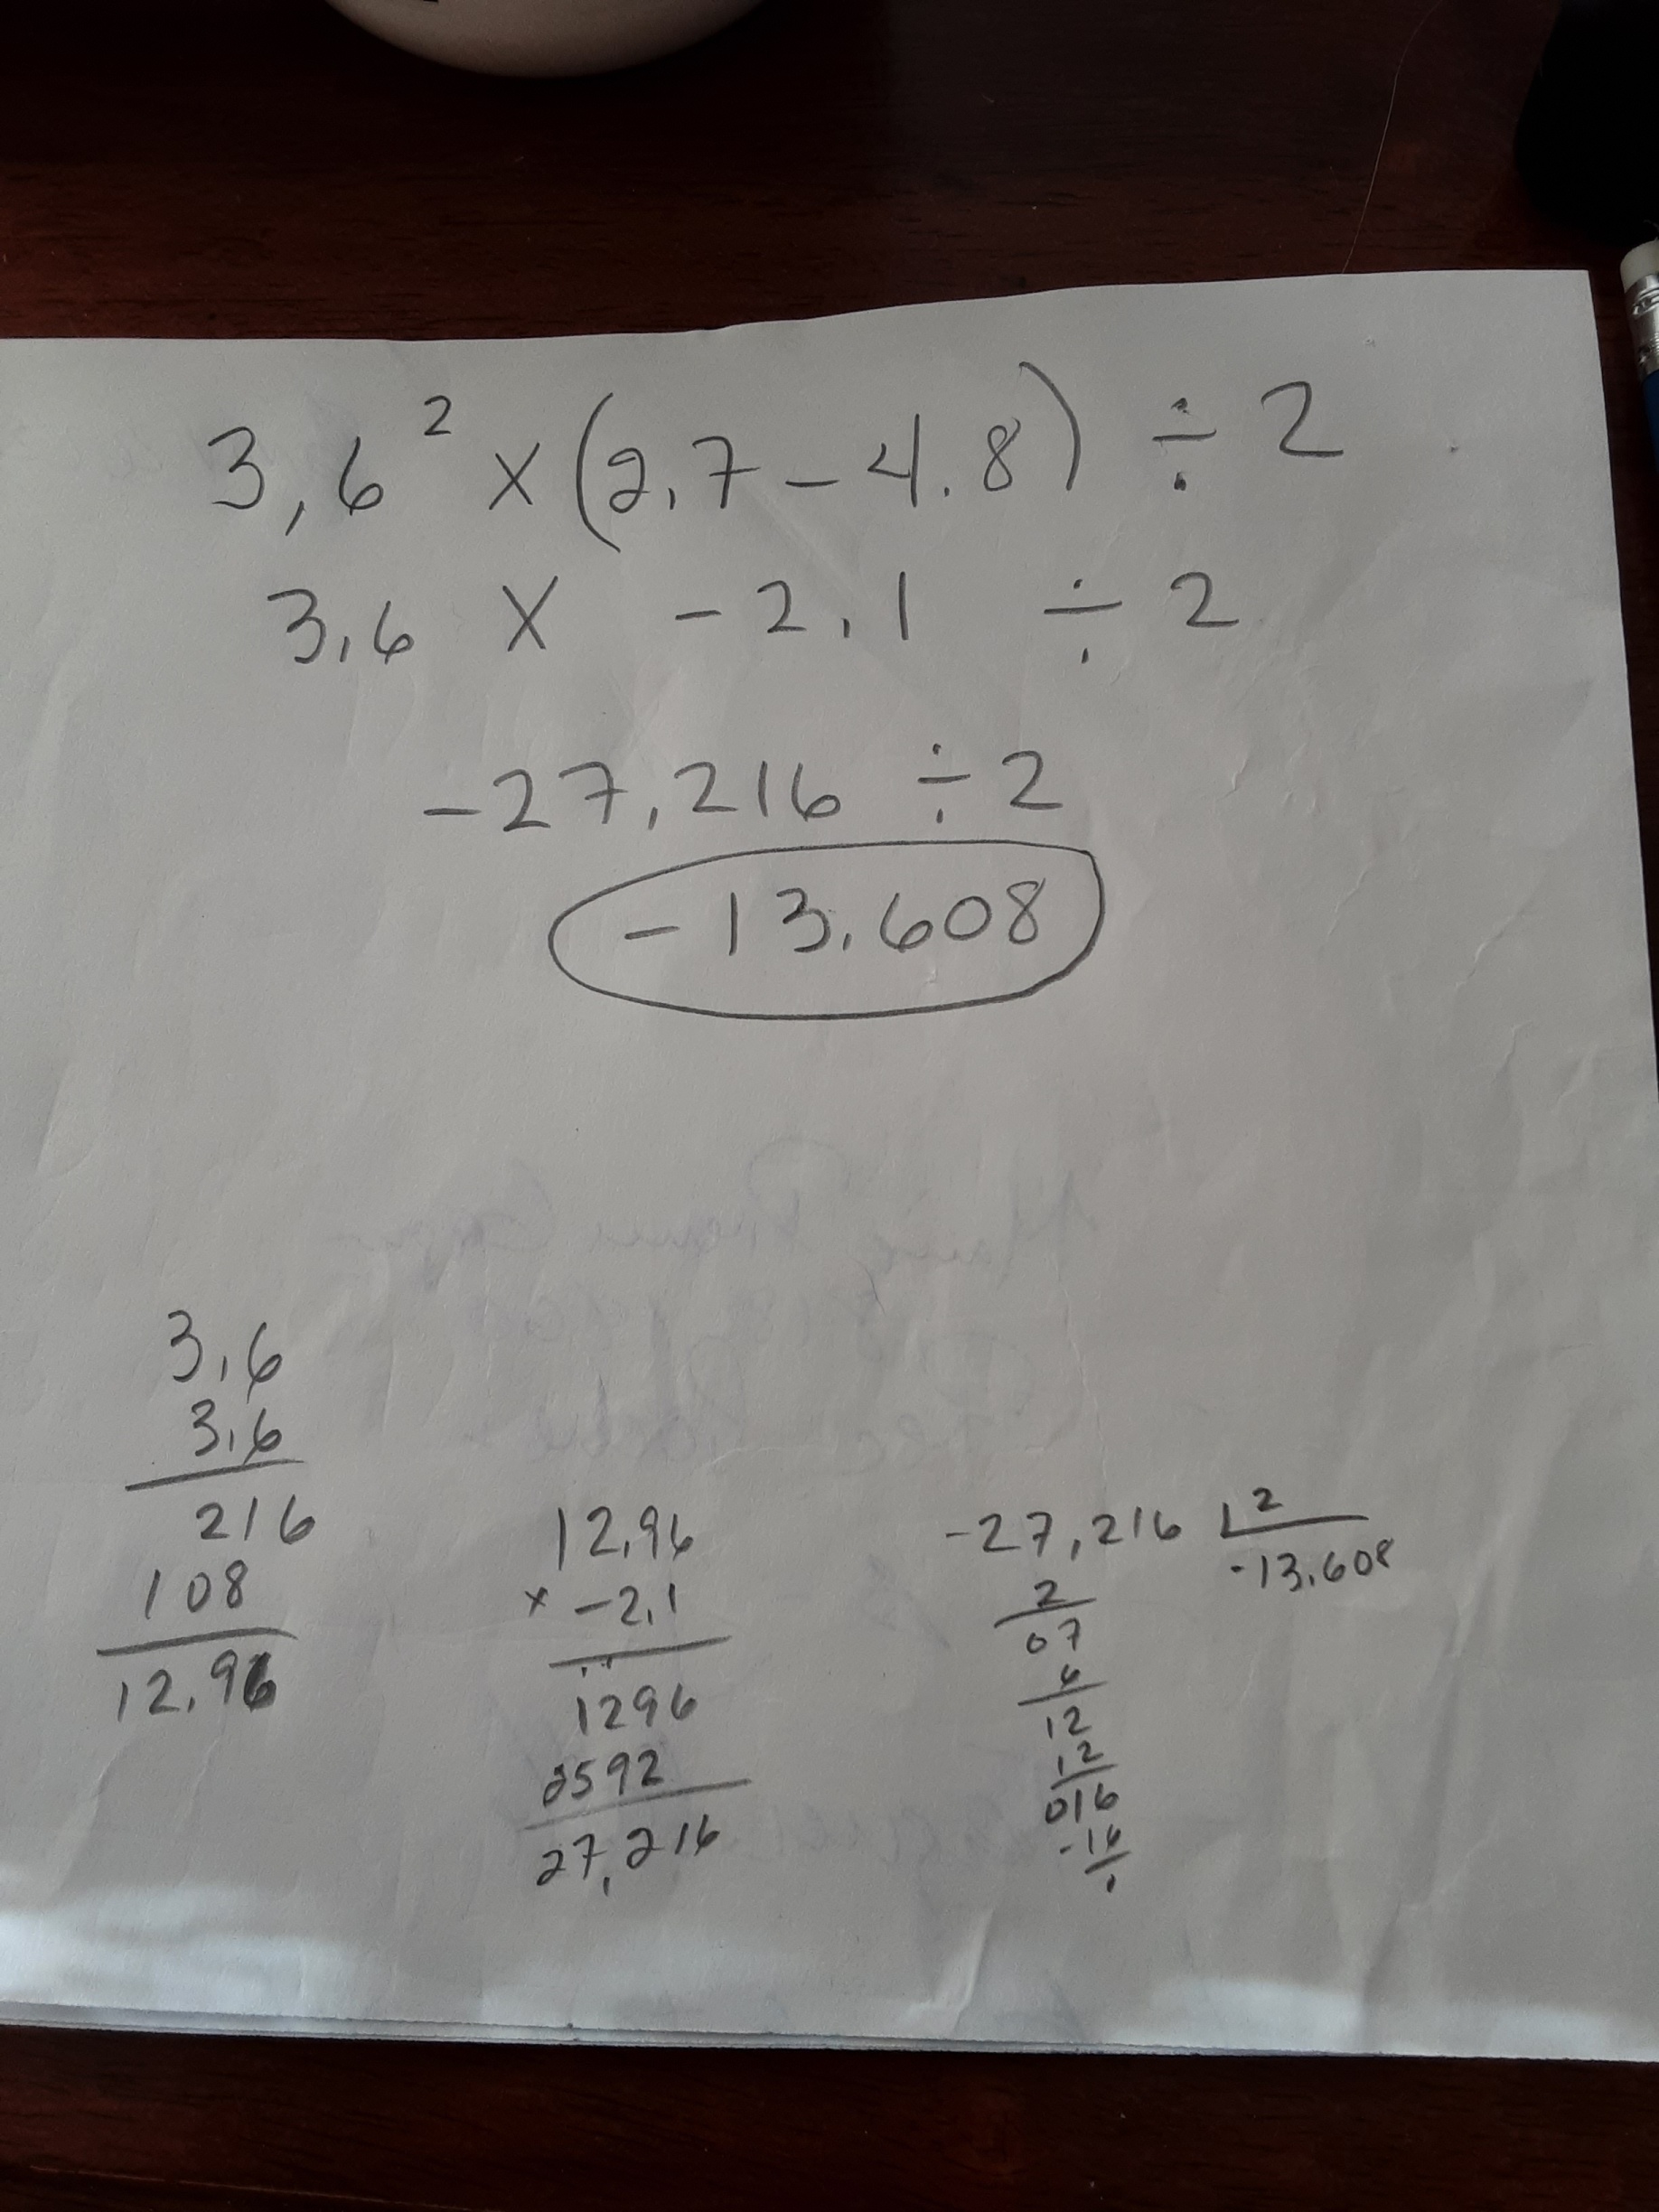 3,6² × (2,7 - 4.8) ÷ 2
3,6 × -2,1 ÷ 2
-27,216 ÷ 2
-13.608
3,6
3,6
216
108
12,96
12,96
× -2,1
1296
2592
27,216
-27,216 2
-13.608
2
07
6
12
12
016
-16